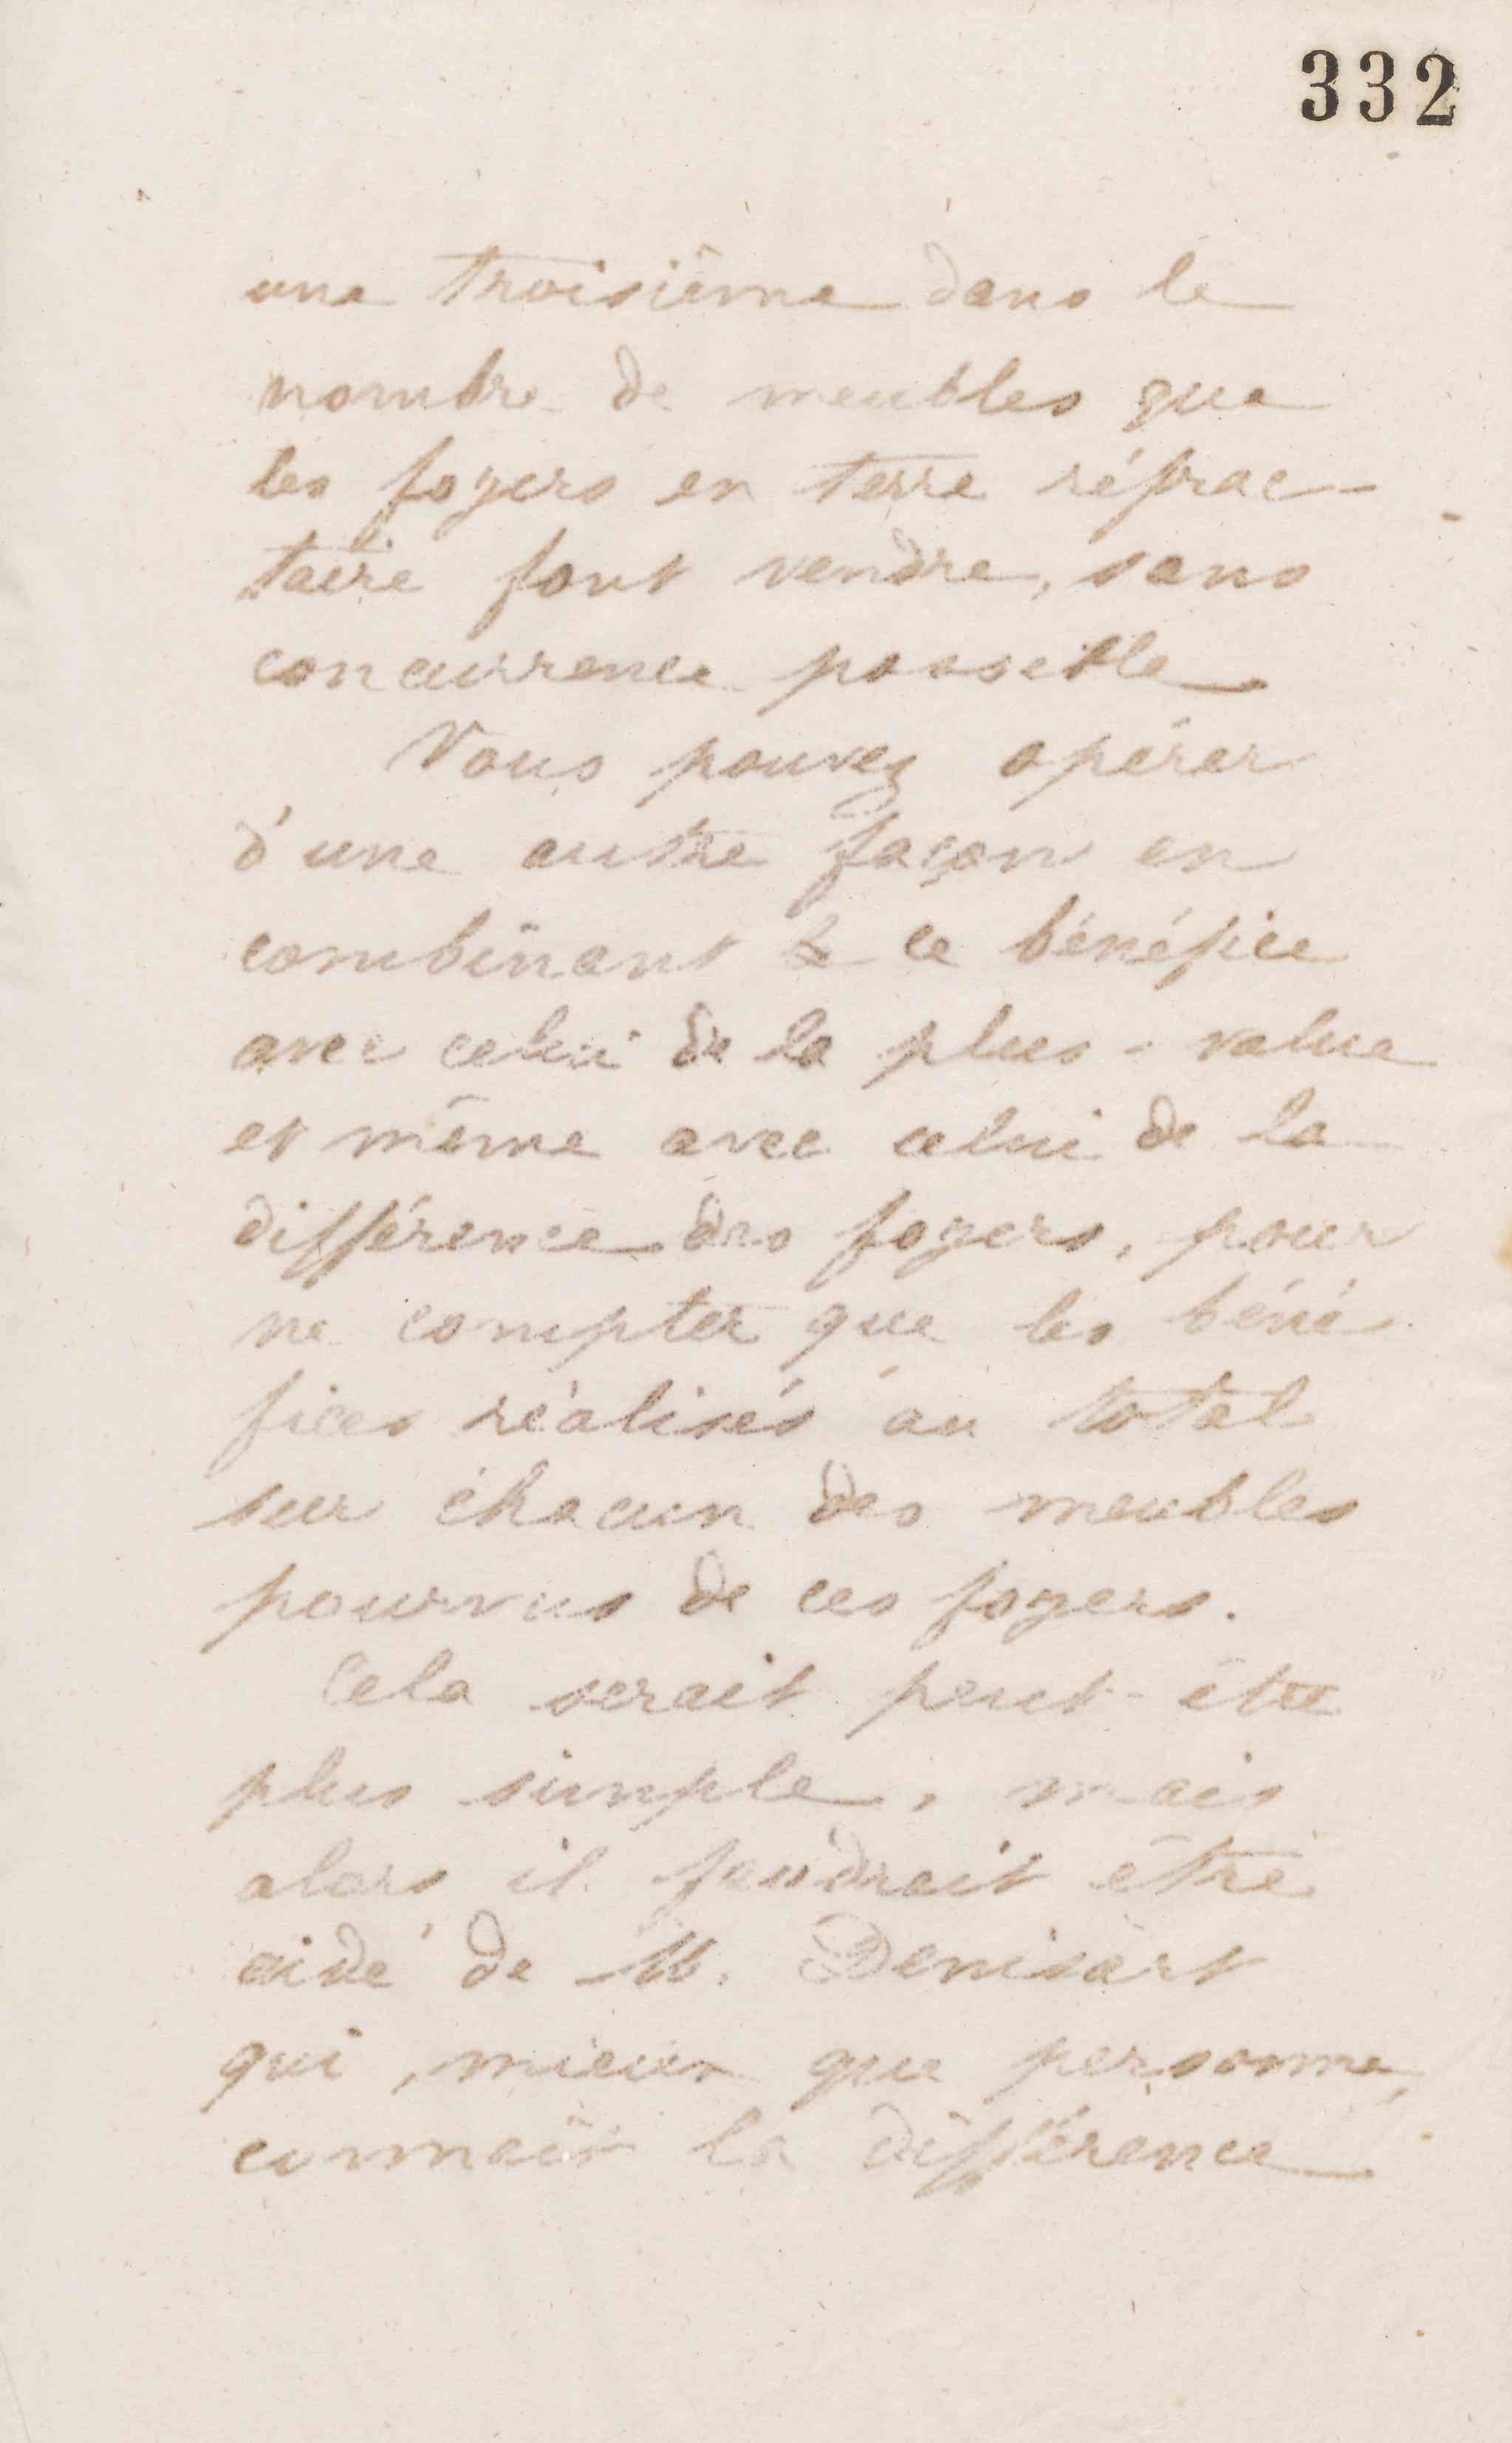 332
une troisième dans le
nombre de meubles que
les foyers en terre réfrac-
taire font vendre, sans
concurrence possible
Vous pouvez opérer
d'une autre façon en
combinant ce bénéfice
avec celui de la plus-value
et même avec celui de la
différence des foyers, pour
ne compter que les béné
fices réalisés au total
sur chacun des meubles
pourvus de ces foyers.
Cela serait peut-être
plus simple, mais
alors il faudrait être
aidé de M. Denisart
qui, mieux que personne,
connaît la différence